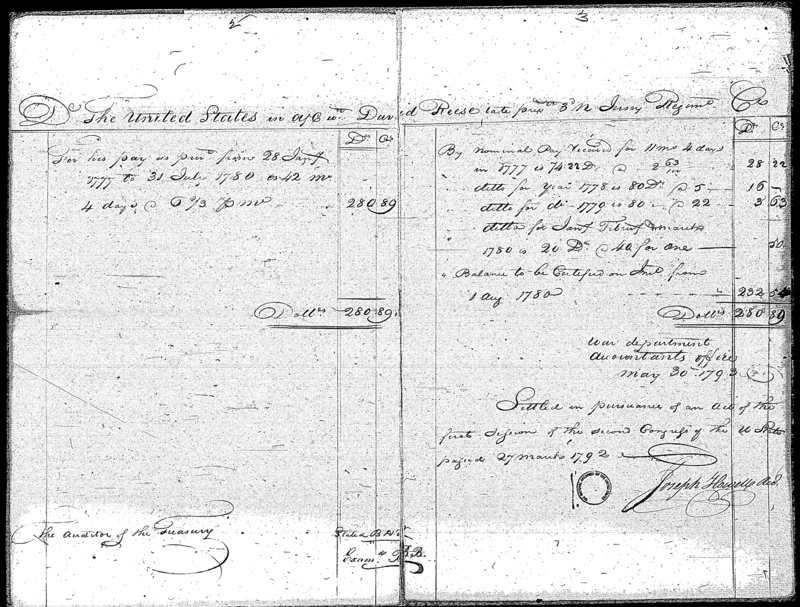 2
3
Dr The United States in a/c wth David Reese late priv. 3d N Jersey Regimt Cr
Drs Cs
For his pay as privt from 28 Jany
1777 to 31 July 1780 is 42 mo
4 days @ 6 2/3 p mo 280 89
Dollrs 280 89
The Auditor of the Treasury
Stated B
Examd
Ds Cs
By nominal Pay received for 11 mo 4 days
in 1777 is 74.22 Ds @ 2 63/100 28 22
" ditto for Year 1778 is 80 Ds @ 5 16 -
" ditto for do 1779 is 80 @ 22 3 63
" ditto for Jany Febuy & march
1780 is 20 Ds @ 40 for one 50
" Balance to be Certified on Int. from
1 Aug. 1780 232 54
Dollrs 280 89
War department
Accountants office
May 30th 1793
Settled in pursuance of an act of the
first session of the second Congress of the U States
passed 27 march 1792
Joseph Howell